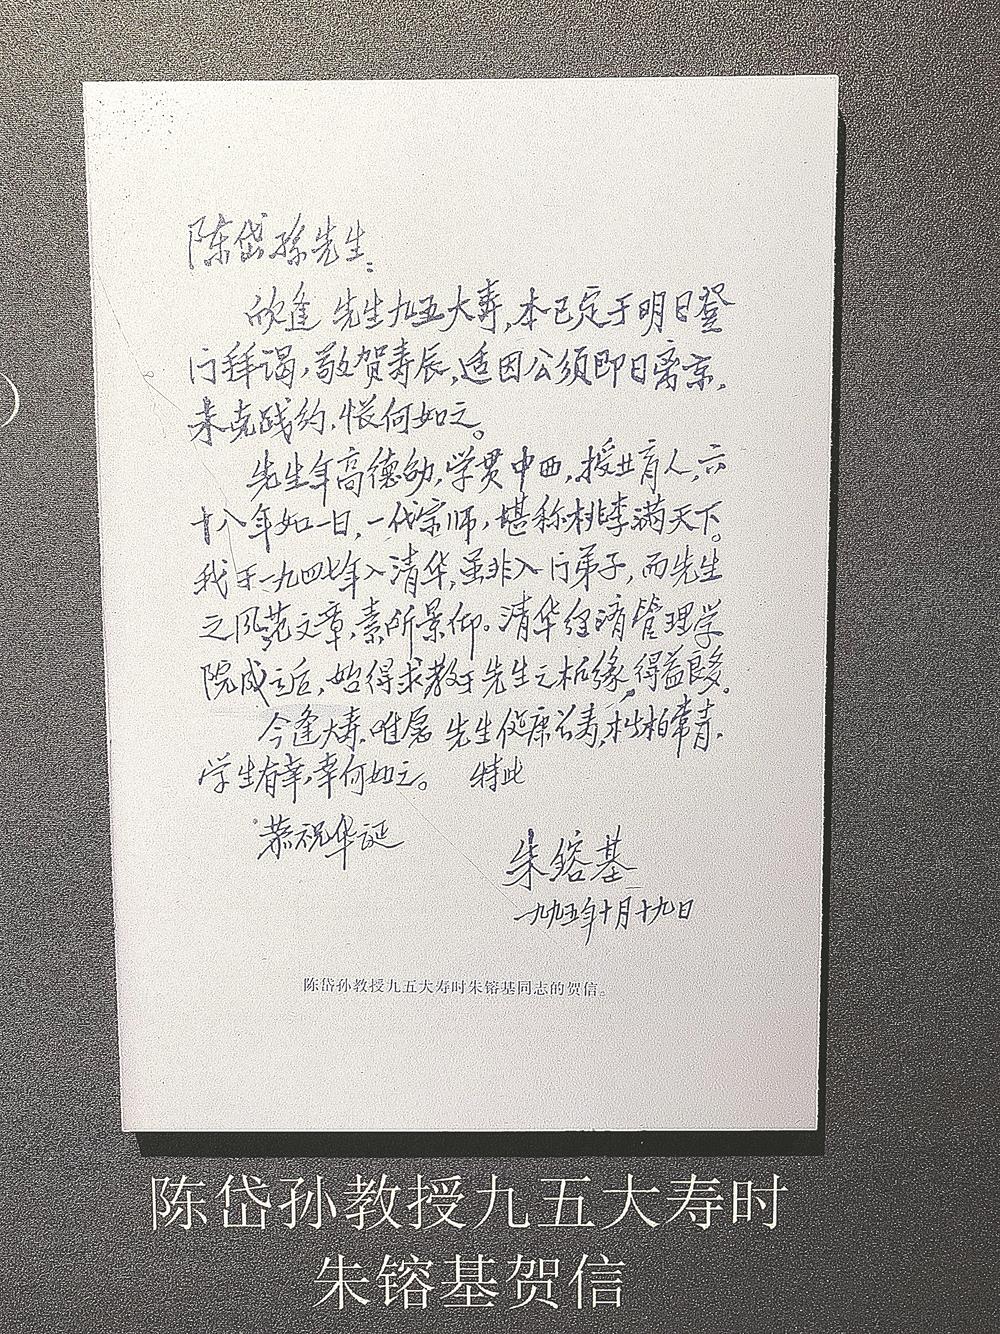 陈岱孙先生：
欣逢 先生九五大寿，本已定于明日登
门拜谒，敬贺寿辰，适因公须即日离京，
未克践约，怅何如之。
先生年高德劭，学贯中西，授业育人，六
十八年如一日，一代宗师，堪称桃李满天下。
我于一九四七年入清华，虽非入门弟子，而先生
之风范文章，素所景仰。清华经济管理学
院成立后，始得求教于先生之机缘，得益良多。
今逢大寿，唯愿 先生健康长寿，松柏常青，
学生有幸，幸何如之。 特此
恭祝华诞
朱镕基
一九九五年十月十九日
陈岱孙教授九五大寿时朱镕基同志的贺信。
陈岱孙教授九五大寿时
朱镕基贺信